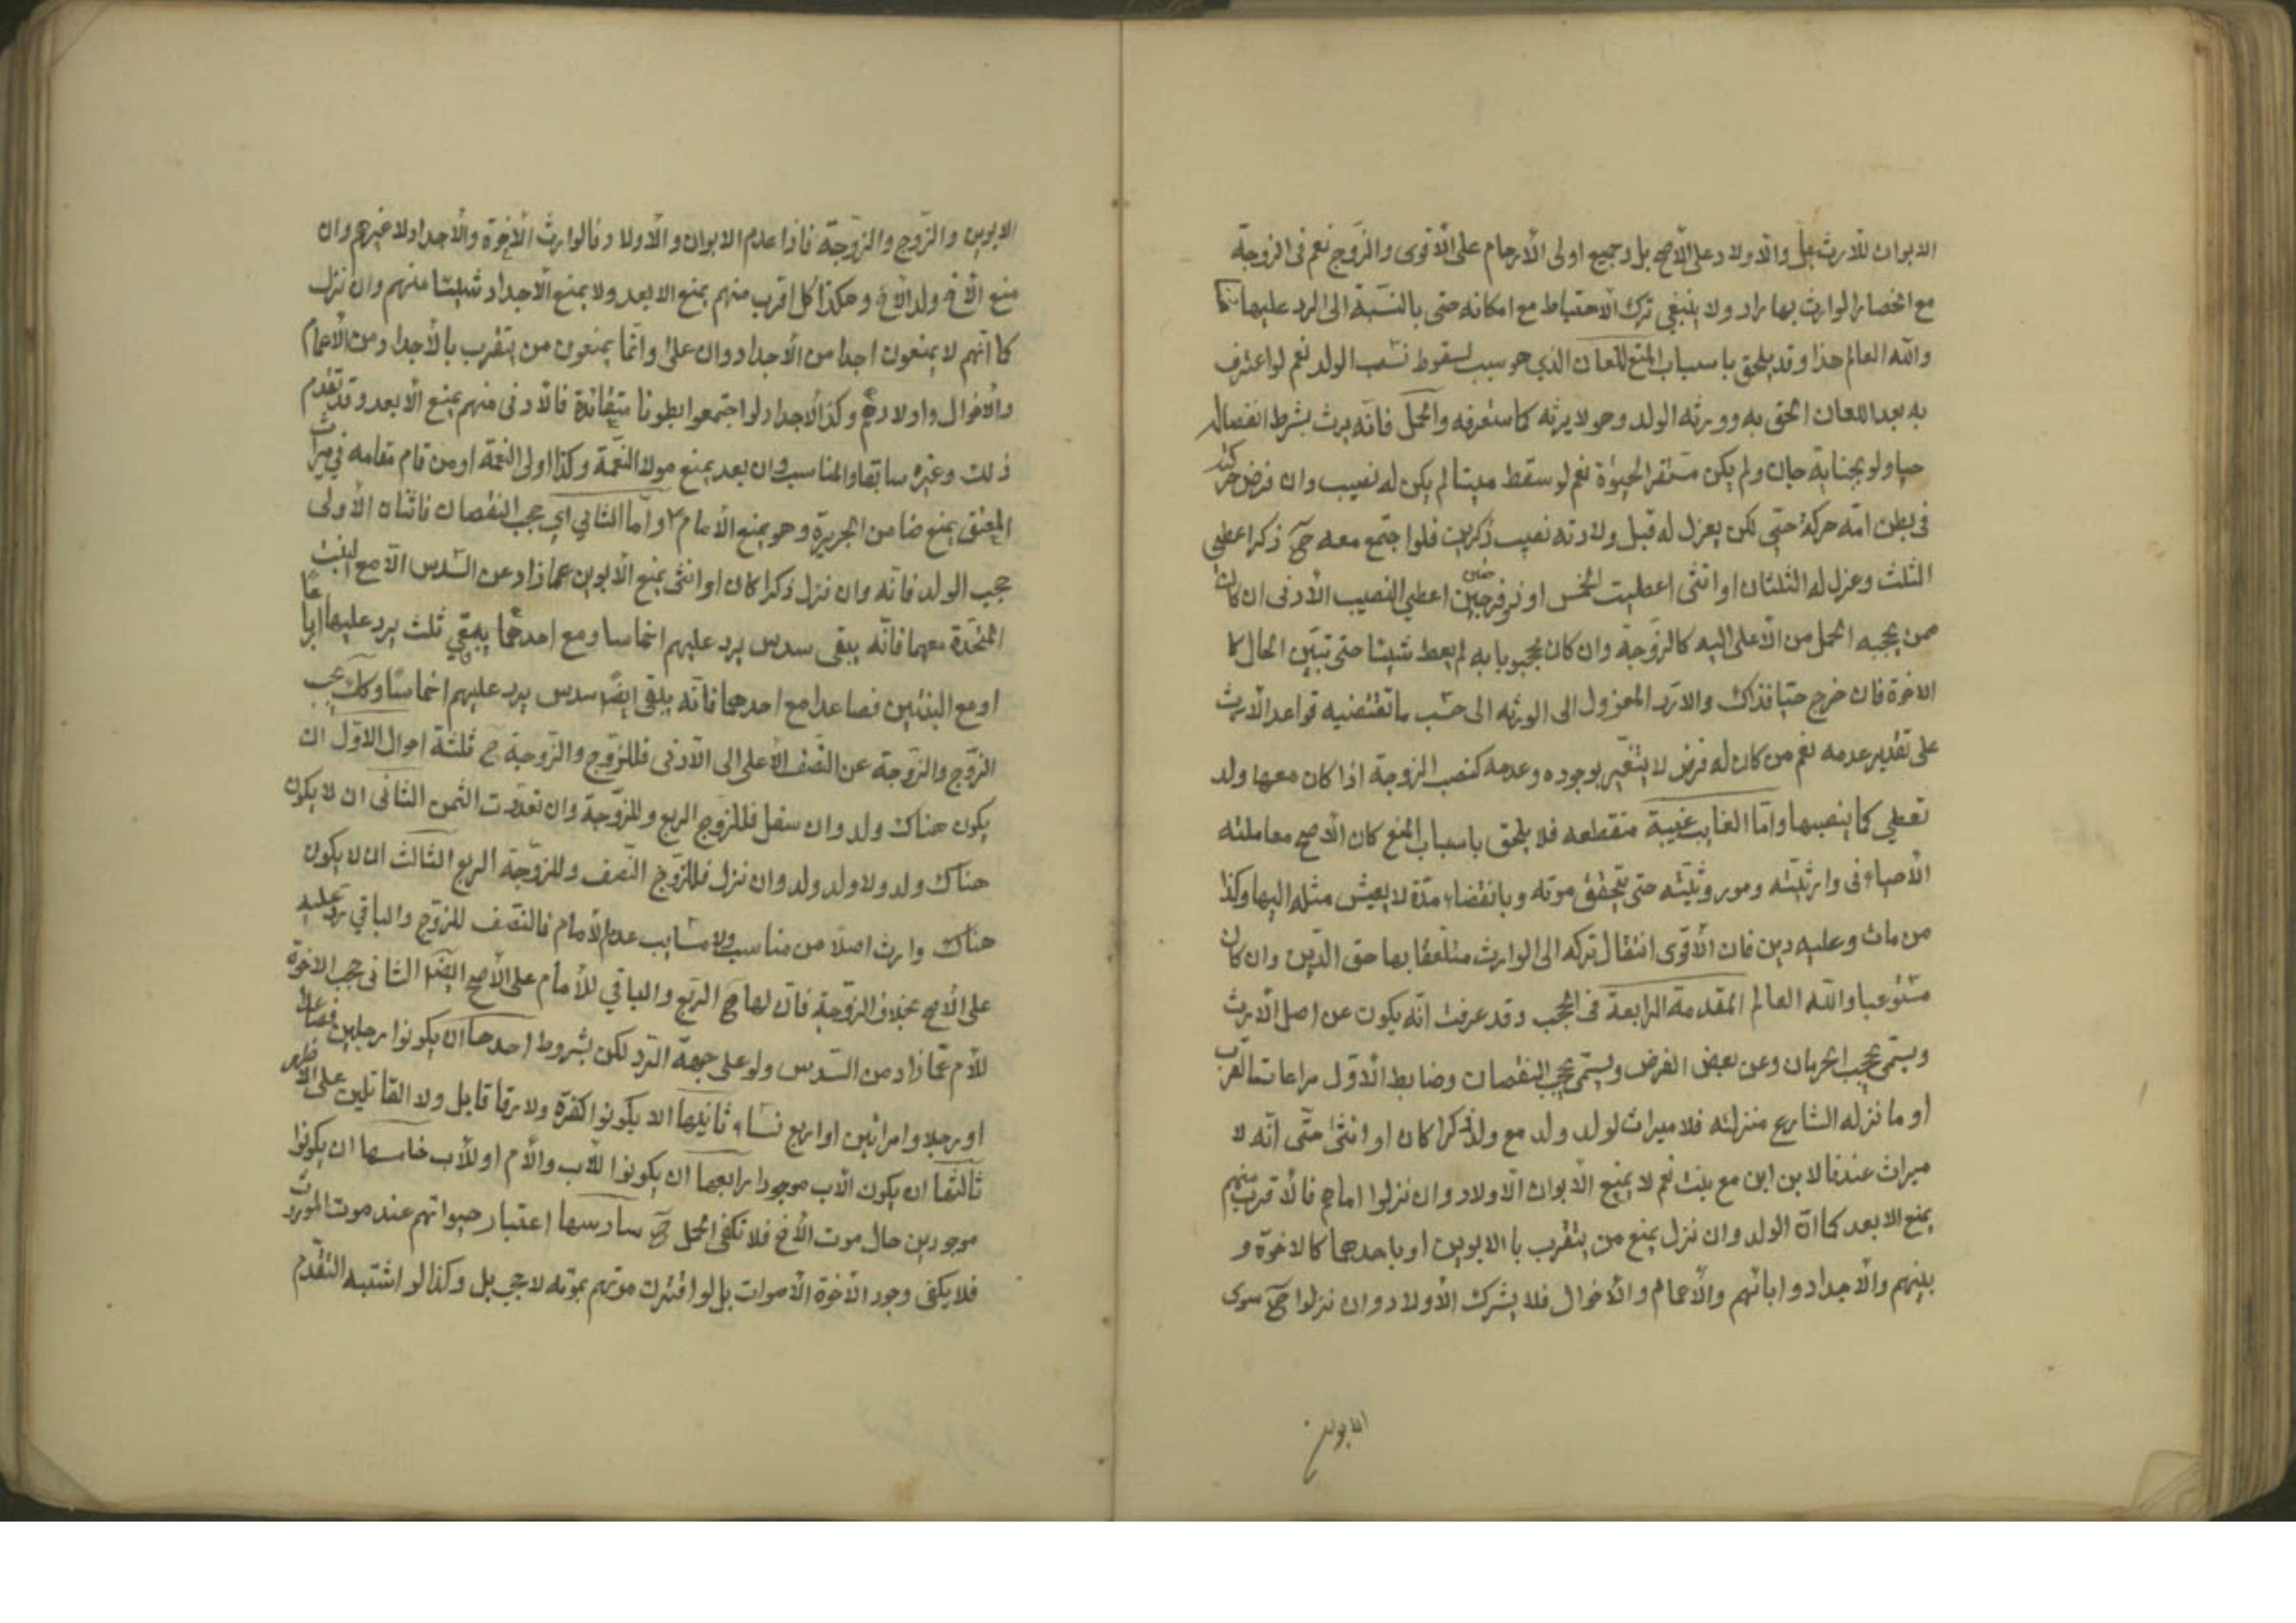 الابوان للارث بل والاولاد على الاصح بل وجميع اولى الارحام على الاقوى والزوج نعم فى الزوجة
مع انحصار الوارث بها يراد ولا ينبغي ترك الاحتياط مع امكانه حتى بالنسبة الى الرد عليها
والله العالم هذا وقد يلحق باسباب المنع اللعان الذي هو سبب لسقوط نسب الولد نعم لو اعترف
به بعد اللعان الحق به وورثه الولد وهو لا يرثه كما ستعرفه والحمل فانه يرث بشرط انفصاله
حيا ولو بجناية جان ولم يكن مستقر الحيوة نعم لو سقط ميتا لم يكن له نصيب وان فرض
فى بطن امه حركة حتى لكن يعزل له قبل ولادته نصيب ذكرين فلو اجتمع معه ح ذكرا اعطى
الثلث وعزل له الثلثان او انثى اعطيت الخمس او اعطي النصيب الادنى ان كان
ممن يحجبه الحمل من الاعلى اليه كالزوجة وان كان محجوبا به لم يعط شيئا حتى تبين الحال كا
الاخوة فان خرج حيا فذاك والا رد المعزول الى الورثه الى حسب ما تقتضيه قواعد الارث
على تقدير عدمه نعم من كان له فرض لا يتغير بوجوده وعدمه كنصب الزوجة اذا كان معها ولد
تعطي كما ينصبها واما الغايب غيبة منقطعه فلا يلحق باسباب المنع كان الاصح معاملته
الاحياء فى وارثيته وموروثيته حتى يتحقق موته وبانقضاء مدة لا يعيش مثله اليها وكذا
من مات وعليه دين فان الاقوى انتقال تركه الى الوارث متعلقا بها حق الدين وان كان
مستوعبا والله العالم المقدمة الرابعة فى الحجب وقد عرفت انه يكون عن اصل الارث
ويسمى بحجب الحرمان وعن بعض الفرض ويسمى بحجب النقصان وضابط الاول مراعات القرب
او ما نزله الشارع منزلته فلا ميراث لولد ولد مع ولد ذكرا كان او انثى حتى انه لا
ميراث عندنا لابن ابن مع بنت نعم لا يمنع الابوان الاولاد وان نزلوا اما هم فالاقرب منهم
يمنع الابعد كما ان الولد وان نزل يمنع من يتقرب بالابوين او باحدهما كالاخوة و
بينهم والاجداد وابائهم والاعمام والاخوال فلا يشرك الاولاد وان نزلوا ح سوى
الابوين
الابوين والزوج والزوجة فاذا عدم الابوان والاولاد فالوارث الاخوة والاجداد لا غيرهم وان
منع الاخ ولد الاخ وهكذا كل اقرب منهم يمنع الابعد ولا يمنع الاجداد شيئا منهم وان نزل
كما انهم لا يمنعون احدا من الاجداد وان علا وانما يمنعون من يتقرب بالاجداد من الاعمام
والاخوال واولادهم وكذا الاجداد لو اجتمعوا بطونا فالادنى منهم يمنع الابعد وقد تقدم
ذلك وغيره سابقا والمناسب وان بعد يمنع مولا النعمة وكذا اولى النعمة او من قام مقامه في ميراث
المعتق يمنع ضامن الجريرة وهو يمنع الامام واما الثاني اي حجب النقصان فاثنان الاولى
حجب الولد فانه وان نزل ذكرا كان او انثى يمنع الابوين عما زاد عن السدس الا مع البنت
المتحدة معهما فانه يبقى سدس يرد عليهم اخماسا ومع احدهما يبقي ثلث يرد عليها ارباعا
او مع البنتين فصاعدا مع احدهما فانه يبقى ايضا سدس يرد عليهم اخماسا وكك يحجب
الزوج والزوجة عن النصف الاعلى الى الادنى فللزوج والزوجة ح ثلثة احوال الاول ان
يكون هناك ولد وان سفل فللزوج الربع وللزوجة وان تعددت الثمن الثانى ان لا يكون
هناك ولد ولا ولد ولد وان نزل فللزوج النصف وللزوجة الربع الثالث ان لا يكون
هناك وارث اصلا من مناسب ولا مسابب عدا الامام فالنصف للزوج والباقي يرد عليه
على الاصح بخلاف الزوجة فان لها ح الربع والباقي للامام على الاصح ايضا الثانى حجب الاخوة
للام عما زاد من السدس ولو على جهة الرد لكن بشروط احدها ان يكونوا رجلين فصاعدا
او رجلا وامراتين او اربع نساء ثانيها الا يكونوا كفرة ولا رقا قابل ولا القاتلين على الاظهر
ثالثها ان يكون الاب موجودا رابعها ان يكونوا للاب والام او للاب خامسها ان يكونوا
موجودين حال موت الاخ فلا تكفى الحمل ح سادسها اعتبار حيواتهم عند موت المورث
فلا يكفى وجود الاخوة الاموات بل لو اقترن موتهم بموته لا حجب بل وكذا لو اشتبه التقدم